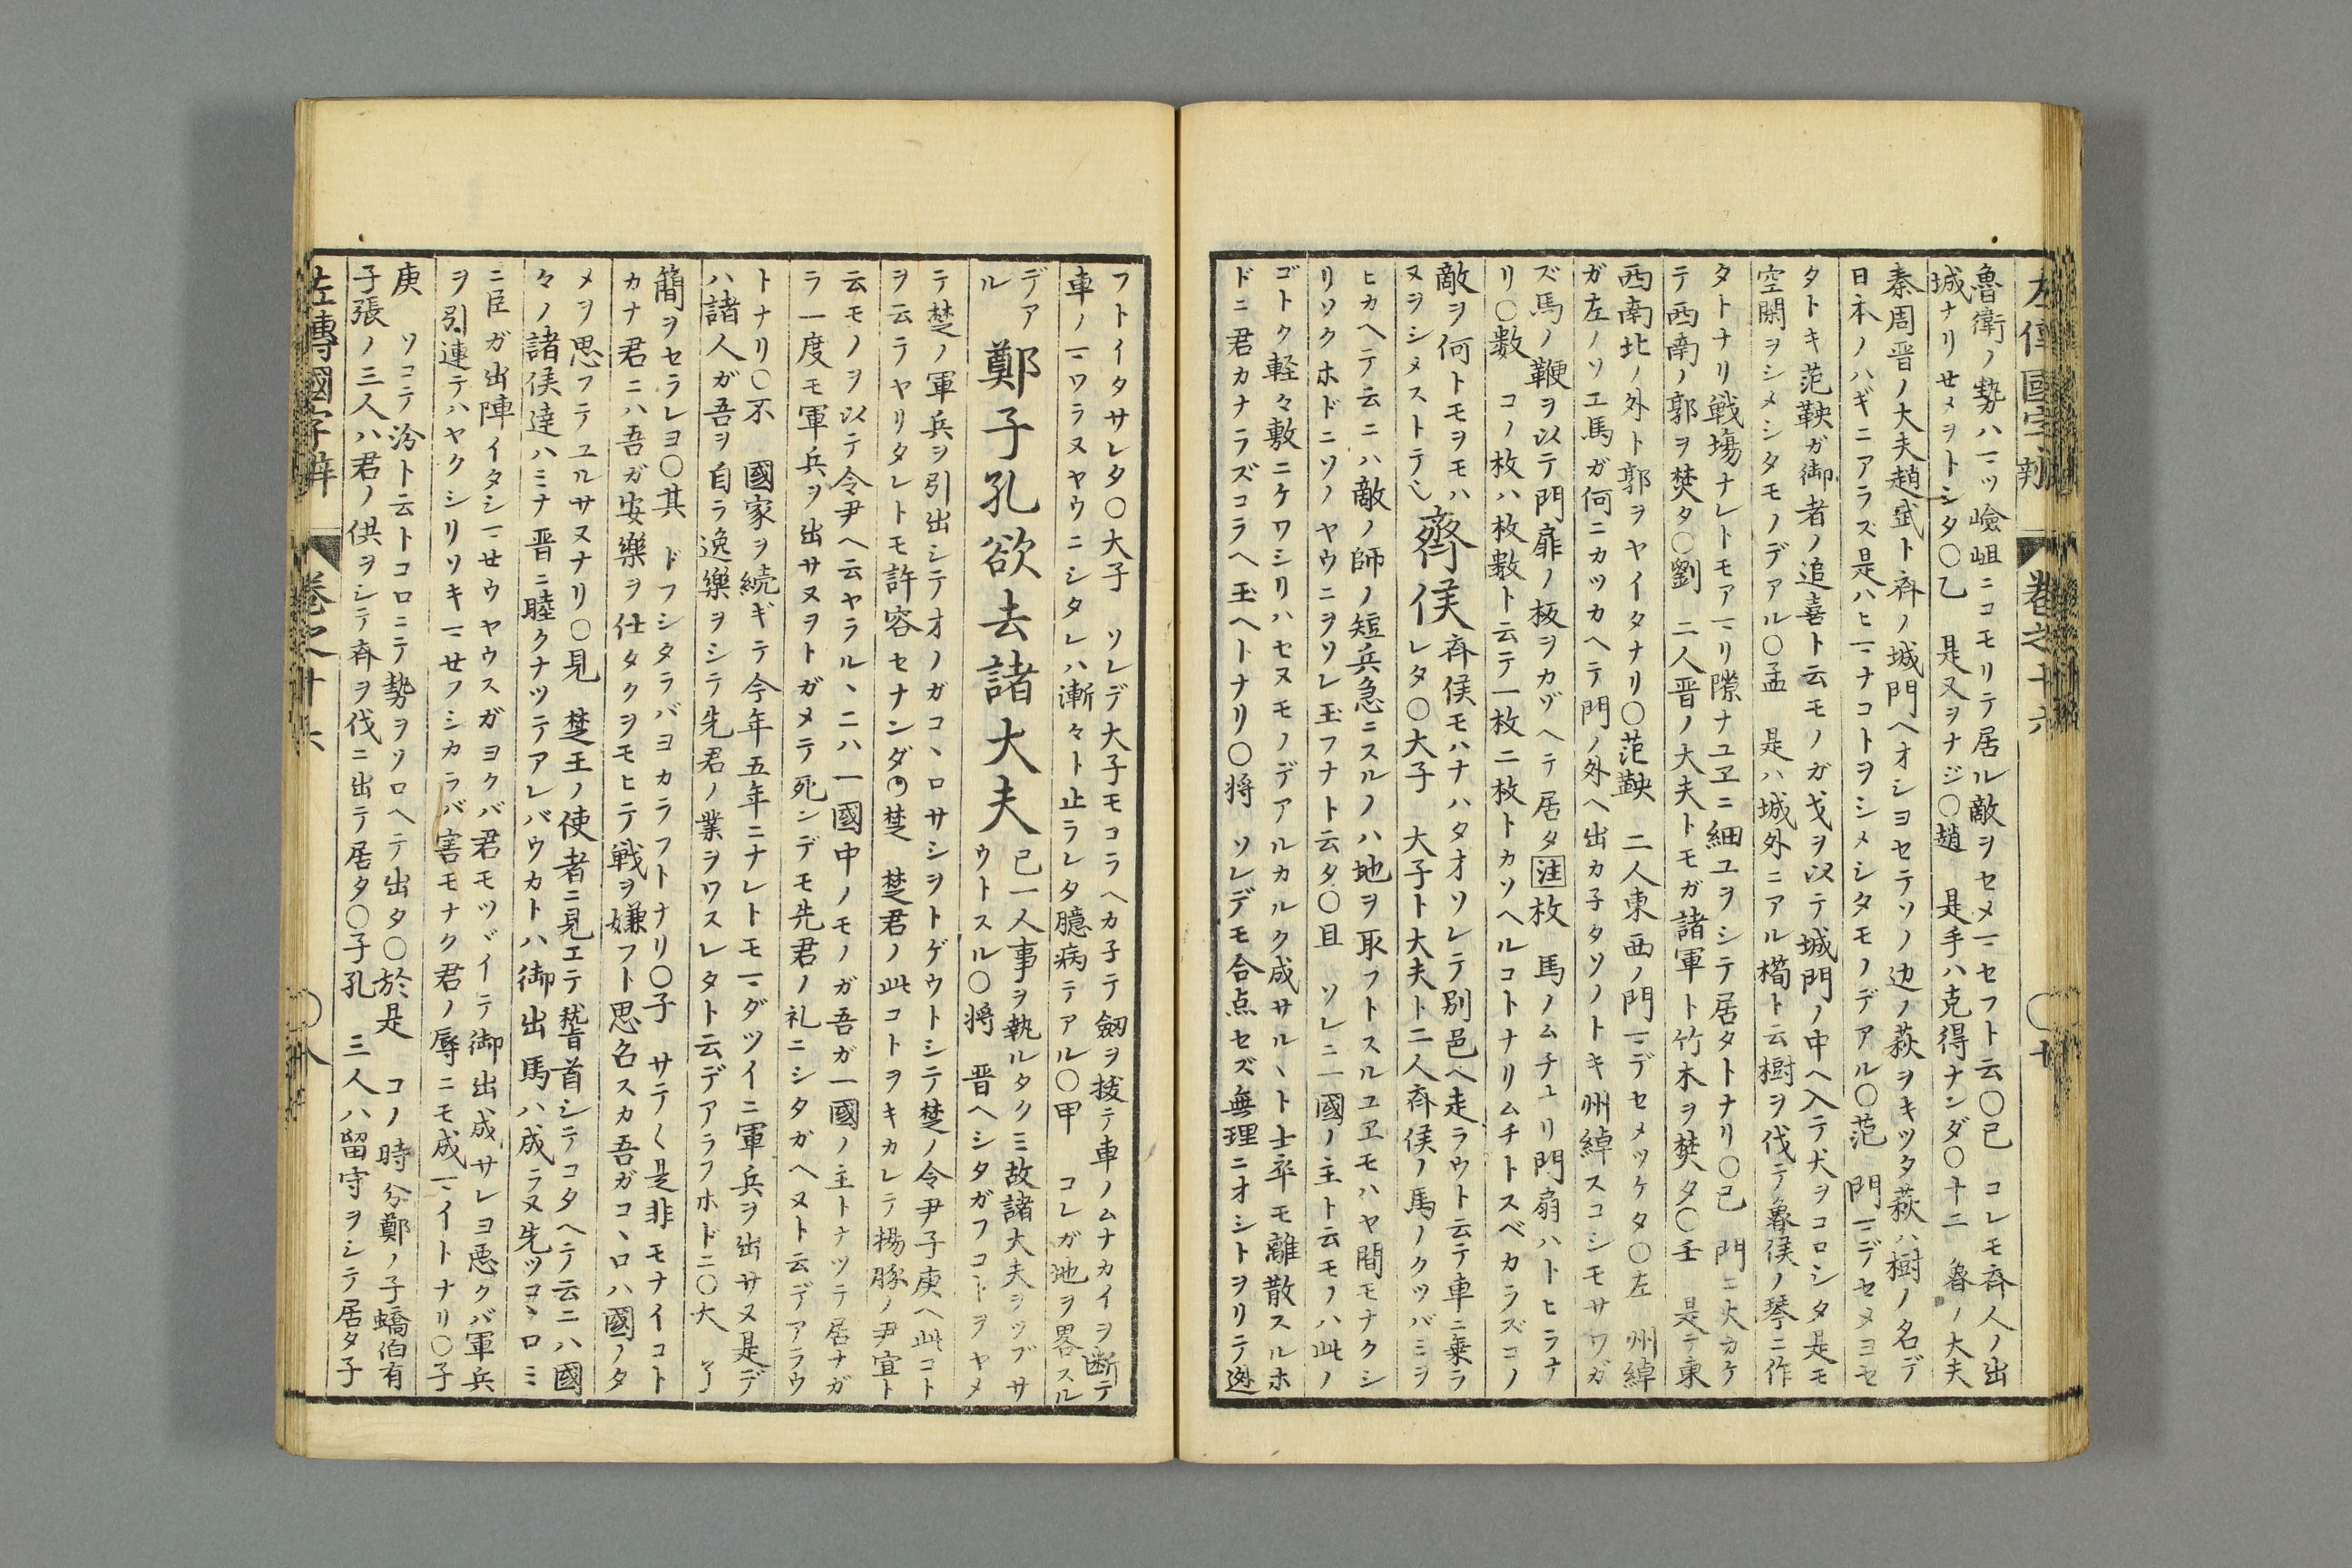 左傳國字辯 巻之十六 〇十
魯衛ノ勢ハマヅ嶮岨ニコモリテ居ル敵ヲセメマセフト云〇己 コレモ斉人ノ出
城ナリせメヲトシタ〇乙 是又ヲナジ〇趙 是手ハ克得ナンダ〇十二 魯ノ大夫
秦周晋ノ大夫趙武ト斉ノ城門ヘオシヨセテソノ边ノ萩ヲキツタ萩ハ樹ノ名デ
日本ノハギニアラズ是ハヒマナコトヲシメシタモノデアル〇范 門マデセメヨセ
タトキ范鞅ガ御者ノ追喜ト云モノガ戈ヲ以テ城門ノ中ヘ入テ犬ヲコロシタ是モ
空閑ヲシメシタモノデアル〇孟 是ハ城外ニアル橁ト云樹ヲ伐テ魯侯ノ琴ニ作
タトナリ戦場ナレトモアマリ隙ナユヱニ細ユヲシテ居タトナリ〇己 門ニ火カケ
テ西南ノ郭ヲ焚タ〇劉 二人晋ノ大夫トモガ諸軍ト竹木ヲ焚タ〇壬 是テ東
西南北ノ外ト郭ヲヤイタナリ〇范鞅 二人東西ノ門マデセメツケタ〇左 州綽
ガ左ノソエ馬ガ何ニカツカヘテ門ノ外ヘ出カ子タソノトキ州綽スコシモサワガ
ズ馬ノ鞭ヲ以テ門扉ノ板ヲカゾヘテ居タ注枚 馬ノムチユリ門扇ハトヒラナ
リ〇數 コノ枚ハ枚數ト云テ一枚二枚トカソヘルコトナリムチトスベカラズコノ
敵ヲ何トモヲモハ齊侯斉侯モハナハタオソレテ別邑ヘ走ラウト云テ車ニ乗ラ
ヌヲシメストテ乀レタ〇大子 大子ト大夫ト二人斉侯ノ馬ノクツバミヲ
ヒカヘテ云ニハ敵ノ師ノ短兵急ニスルノハ地ヲ取フトスルユヱモハヤ間モナクシ
リソクホドニソノヤウニヲソレ玉フナト云タ〇且 ソレニ一國ノ主ト云モノハ此ノ
ゴトク軽々敷ニケワシリハセヌモノデアルカルク成サルヽト士卒モ離散スルホ
ドニ君カナラズコラヘ玉ヘトナリ〇将 ソレデモ合点セズ無理ニオシトヲリテ逃
フトイタサレタ〇大子 ソレデ大子モコラヘカ子テ劔ヲ抜テ車ノムナカイヲ断テ
車ノマワラヌヤウニシタレハ漸々ト止ラレタ臆病テアル〇甲 コレガ地ヲ畧スル
デア鄭子孔欲去諸大夫己一人事ヲ執ルタクミ故諸大夫ヲツブサ
ル ウトスル〇将 晋ヘシタガフコトヲヤメ
テ楚ノ軍兵ヲ引出シテオノガコヽロサシヲトゲウトシテ楚ノ令尹子庚ヘ此コト
ヲ云ラヤリタレトモ許容セナンダ〇楚 楚君ノ此コトヲキカレテ揚豚ノ尹宜ト
云モノヲ以テ令尹ヘ云ヤラルヽニハ一國中ノモノガ吾ガ一國ノ主トナツテ居ナガ
ラ一度モ軍兵ヲ出サヌヲトガメテ死ンデモ先君ノ礼ニシタガヘヌト云デアラウ
トナリ〇不 國家ヲ続ギテ今年五年ニナレトモマダツイニ軍兵ヲ出サヌ是デ
ハ諸人ガ吾ヲ自ラ逸樂ヲシテ先君ノ業ヲワスレタト云デアラフホドニ〇大 了
簡ヲセラレヨ〇其 ドフシタラバヨカラフトナリ〇子 サテ〱是非モナイコト
カナ君ニハ吾ガ安樂ヲ仕タクヲモヒテ戦ヲ嫌フト思召スカ吾ガコヽロハ國ノタ
メヲ思フテユルサヌナリ〇見 楚王ノ使者ニ見エテ稽首シテコタヘテ云ニハ國
々ノ諸侯達ハミナ晋ニ睦クナツテアレバウカトハ御出馬ハ成ラヌ先ツコヽロミ
ニ臣ガ出陣イタシマせウヤウスガヨクバ君モツヾイテ御出成サレヨ悪クバ軍兵
ヲ引連テハヤクシリソキマせフシカラバ害モナク君ノ辱ニモ成マイトナリ〇子
庚 ソコテ汾ト云トコロニテ勢ヲソロヘテ出タ〇於是 コノ時分鄭ノ子蟜伯有
子張ノ三人ハ君ノ供ヲシテ斉ヲ伐ニ出テ居タ〇子孔 三人ハ留守ヲシテ居タ子
左傳國字辯 巻之十六